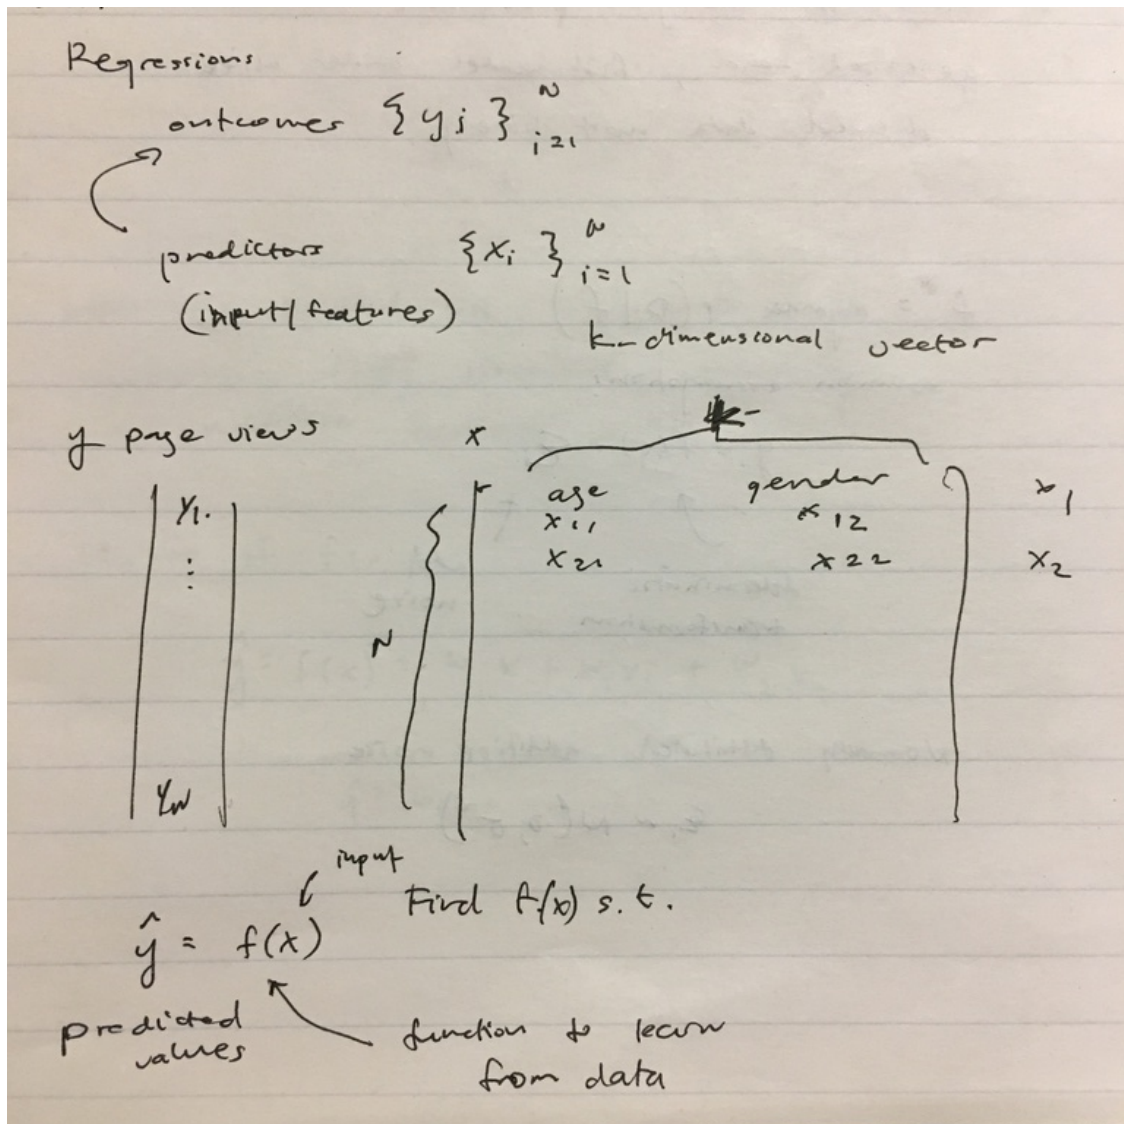 Regressions
outcomes {yi}ᴺ i=1
predictors {xi}ᴺ i=1
(input/features)
k-dimensional vector
y page views x
k
age gender
y1. x11 x12 x1
⋮ x21 x22 x2
N
yN
input
ŷ = f(x) Find f(x) s.t.
predicted values
function to learn
from data